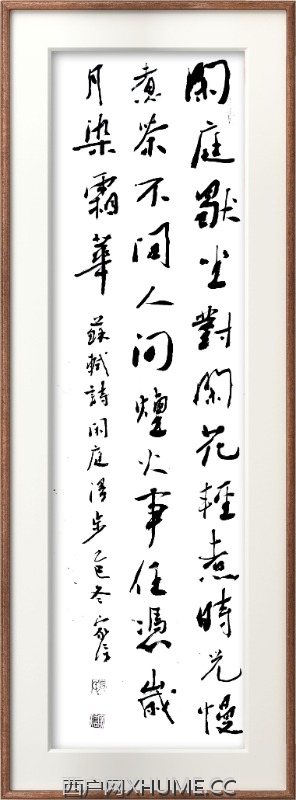 閑庭坐對閑花輕煮時光慢
煮茶不問人間煙火事任憑歲
月染霜華 蘇軾詩閑庭漫步乙巳冬家
西户网XHUME.CC